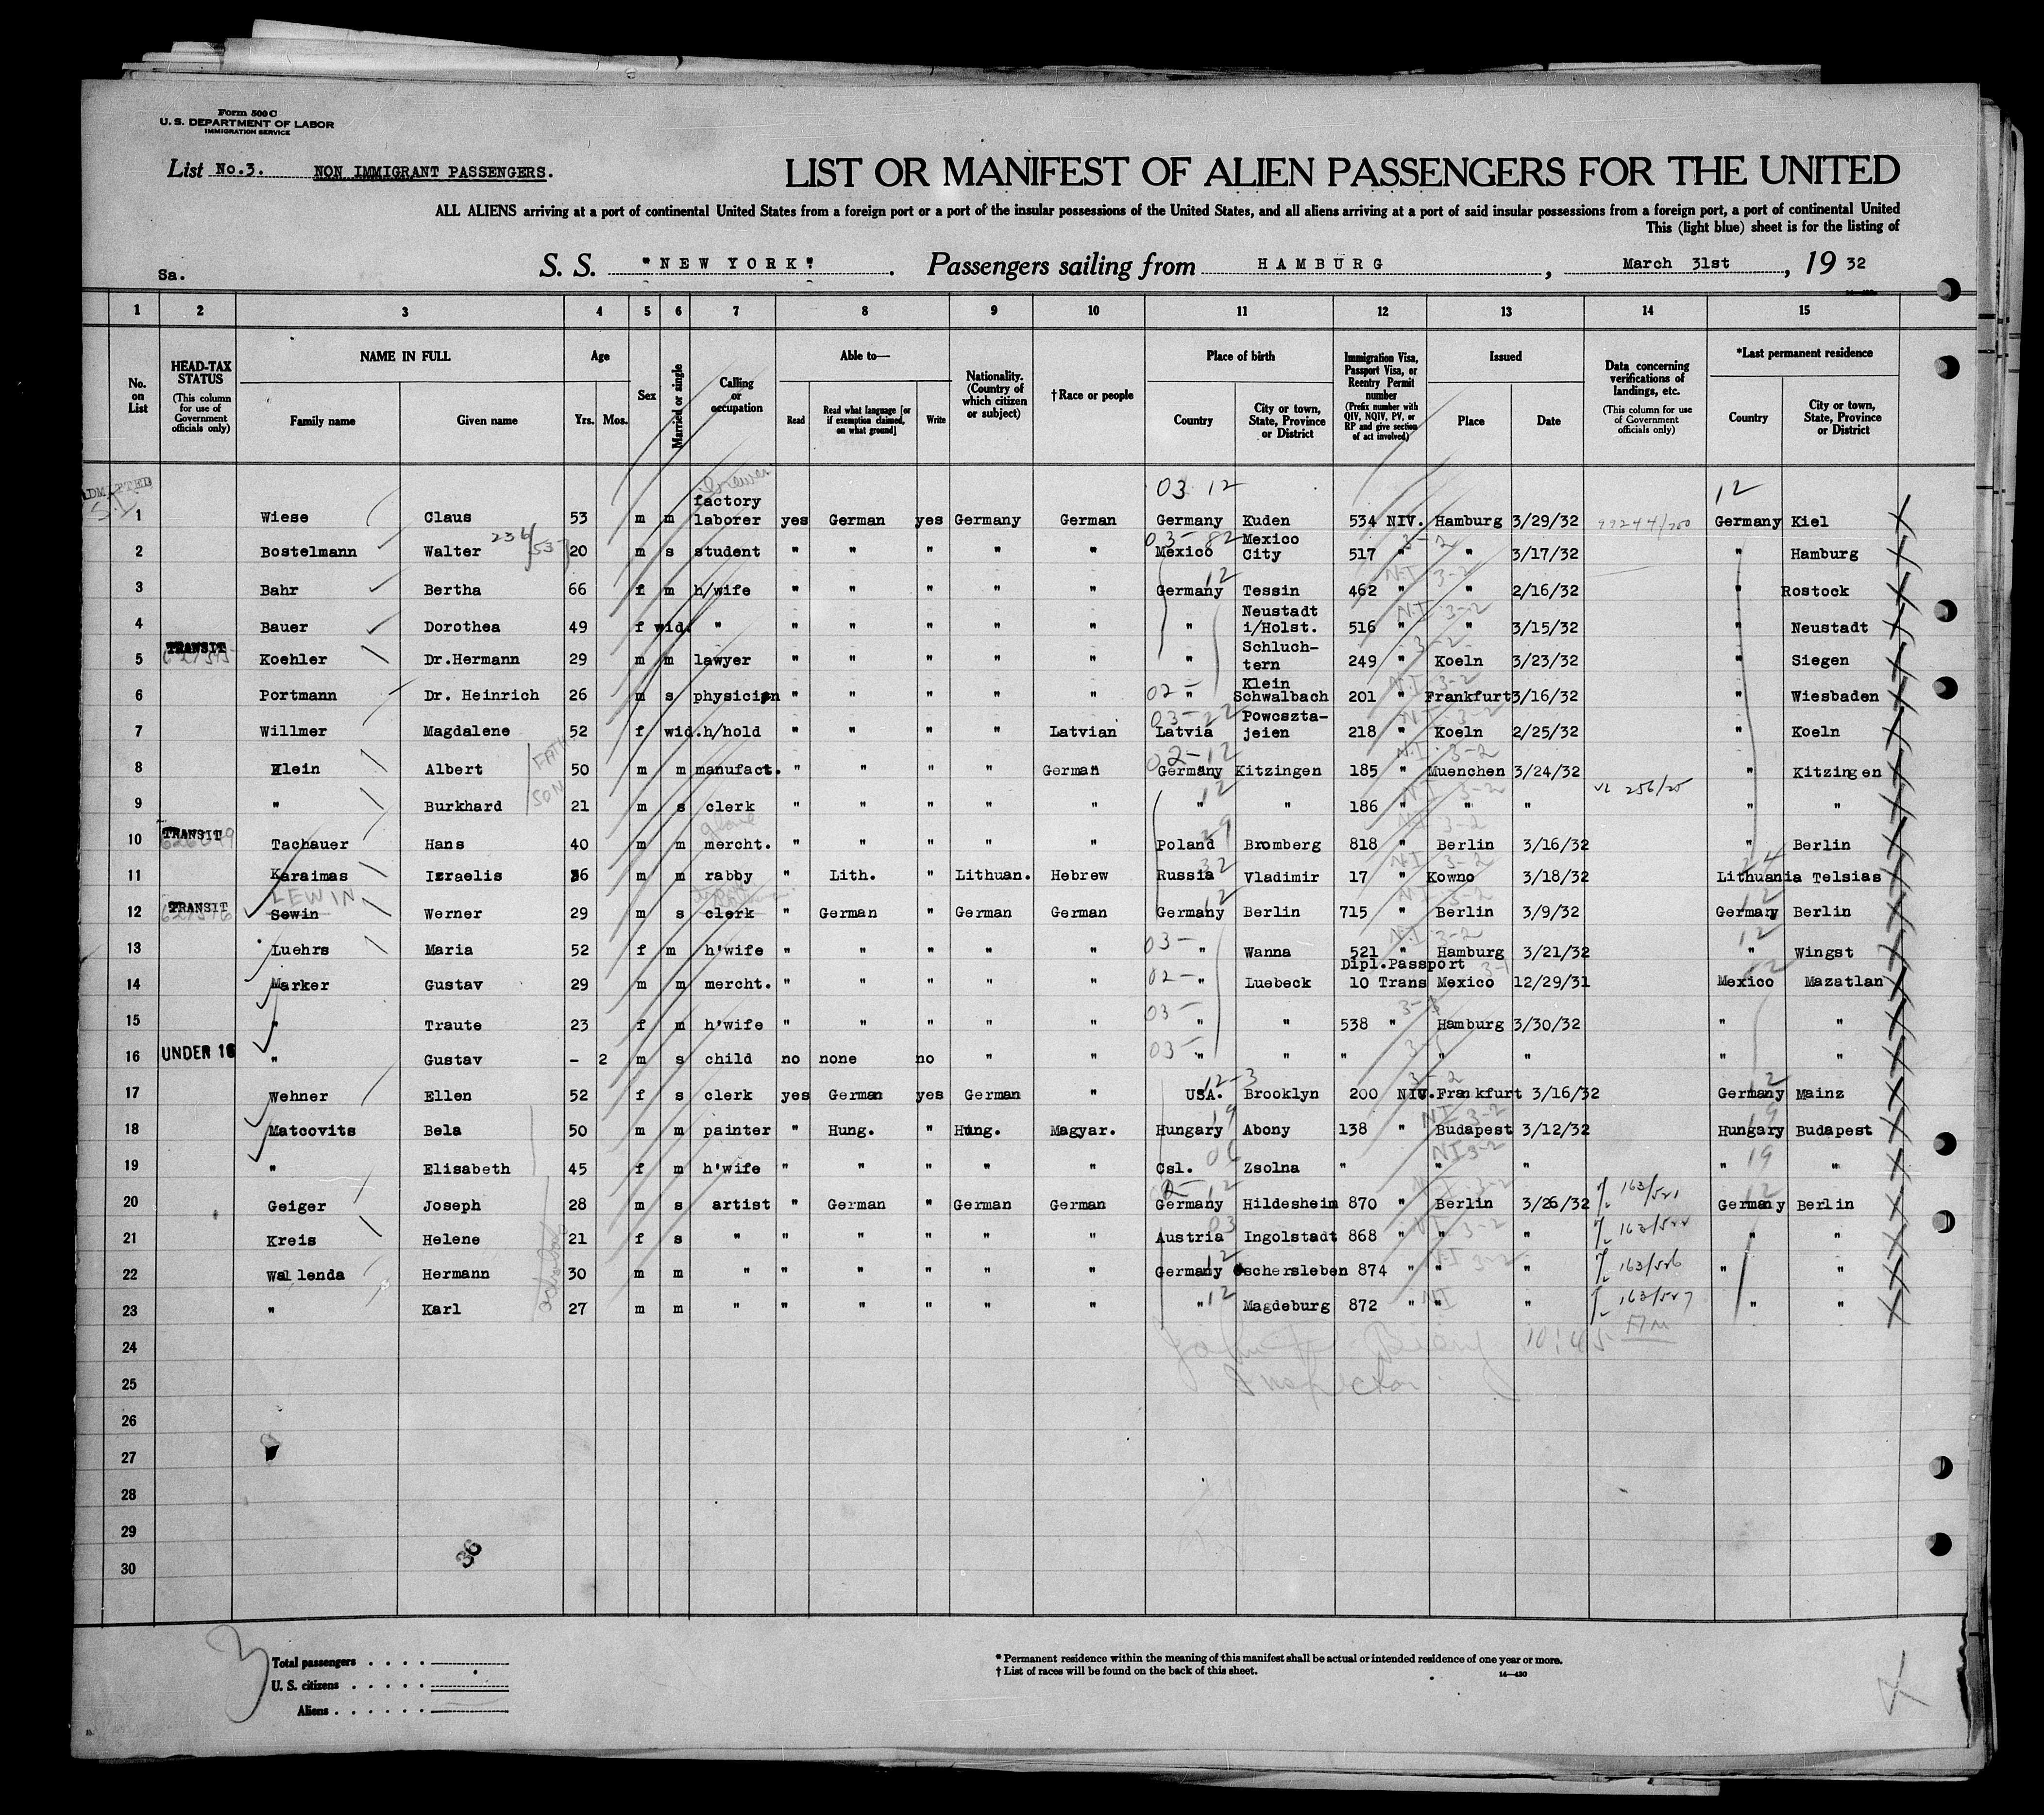 Form 500 C
U. S. DEPARTMENT OF LABOR
IMMIGRATION SERVICE
List No.3. NON IMMIGRANT PASSENGERS.
LIST OR MANIFEST OF ALIEN PASSENGERS FOR THE UNITED
ALL ALIENS arriving at a port of continental United States from a foreign port or a port of the insular possessions of the United States, and all aliens arriving at a port of said insular possessions from a foreign port, a port of continental United
This (light blue) sheet is for the listing of
Sa. S. S. "NEW YORK". Passengers sailing from HAMBURG, March 31st, 19 32
1 2 3 4 5 6 7 8 9 10 11 12 13 14 15
No. on List
HEAD-TAX STATUS (This column for use of Government officials only)
NAME IN FULL Family name Given name
Age Yrs. Mos.
Sex
Married or single
Calling or occupation
Able to— Read Read what language [or if exemption claimed, on what ground] Write
Nationality. (Country of which citizen or subject)
†Race or people
Place of birth Country City or town, State, Province or District
Immigration Visa, Passport Visa, or Reentry Permit number (Prefix number with QIV, NQIV, PV, or RP and give section of act involved)
Issued Place Date
Data concerning verifications of landings, etc. (This column for use of Government officials only)
*Last permanent residence Country City or town, State, Province or District
ADMITTED
03 12 12
1 Wiese Claus 53 m m factory laborer yes German yes Germany German Germany Kuden 534 NIV. Hamburg 3/29/32 Germany Kiel
2 Bostelmann Walter 236/537 20 m s student " " " " " Mexico Mexico City 517 " " 3/17/32 " Hamburg
3 Bahr Bertha 66 f m h/wife " " " " " Germany Tessin 462 " " 2/16/32 " Rostock
4 Bauer Dorothea 49 f wid. " " " " " " " Neustadt i/Holst. 516 " " 3/15/32 " Neustadt
5 TRANSIT Koehler Dr.Hermann 29 m m lawyer " " " " " " Schluch-tern 249 " Koeln 3/23/32 " Siegen
6 Portmann Dr. Heinrich 26 m s physician " " " " " " Klein Schwalbach 201 " Frankfurt 3/16/32 " Wiesbaden
7 Willmer Magdalene 52 f wid. h/hold " " " " Latvian Latvia Powoszta-jeien 218 " Koeln 2/25/32 " Koeln
8 Klein Albert 50 m m manufact. " " " " German Germany Kitzingen 185 " Muenchen 3/24/32 " Kitzingen
9 " Burkhard 21 m s clerk " " " " " " " 186 " " " " "
10 TRANSIT Tachauer Hans 40 m m glove mercht. " " " " " Poland Bromberg 818 " Berlin 3/16/32 " Berlin
11 Karaimas Izraelis 36 m m rabby " Lith. " Lithuan. Hebrew Russia Vladimir 17 " Kowno 3/18/32 Lithuania Telsias
LEWIN
12 TRANSIT Sewin Werner 29 m s clerk " German " German German Germany Berlin 715 " Berlin 3/9/32 Germany Berlin
13 Luehrs Maria 52 f m h'wife " " " " " " Wanna 521 " Hamburg 3/21/32 " Wingst
14 Marker Gustav 29 m m mercht. " " " " " " Luebeck Dipl.Passport 10 Trans Mexico 12/29/31 Mexico Mazatlan
15 " Traute 23 f m h'wife " " " " " " " 538 " Hamburg 3/30/32 " "
16 UNDER 16 " Gustav - 2 m s child no none no " " " " " " " " "
17 Wehner Ellen 52 f s clerk yes German yes German " USA. Brooklyn 200 NIV. Frankfurt 3/16/32 Germany Mainz
18 Matcovits Bela 50 m m painter " Hung. " Hung. Magyar. Hungary Abony 138 " Budapest 3/12/32 Hungary Budapest
19 " Elisabeth 45 f m h'wife " " " " " Csl. Zsolna " " " " "
20 Geiger Joseph 28 m s artist " German " German German Germany Hildesheim 870 " Berlin 3/26/32 163/521 Germany Berlin
21 Kreis Helene 21 f s " " " " " " Austria Ingolstadt 868 " " " " "
22 Wallenda Hermann 30 m m " " " " " " Germany Oschersleben 874 " " " 163/526 " "
23 " Karl 27 m m " " " " " " " Magdeburg 872 " " " 163/527 " "
24 10:45 AM
25 Inspector
26
27
28
29
30
36
3
Total passengers . . . .
U. S. citizens . . . . .
Aliens . . . . . .
* Permanent residence within the meaning of this manifest shall be actual or intended residence of one year or more.
† List of races will be found on the back of this sheet.
14—430